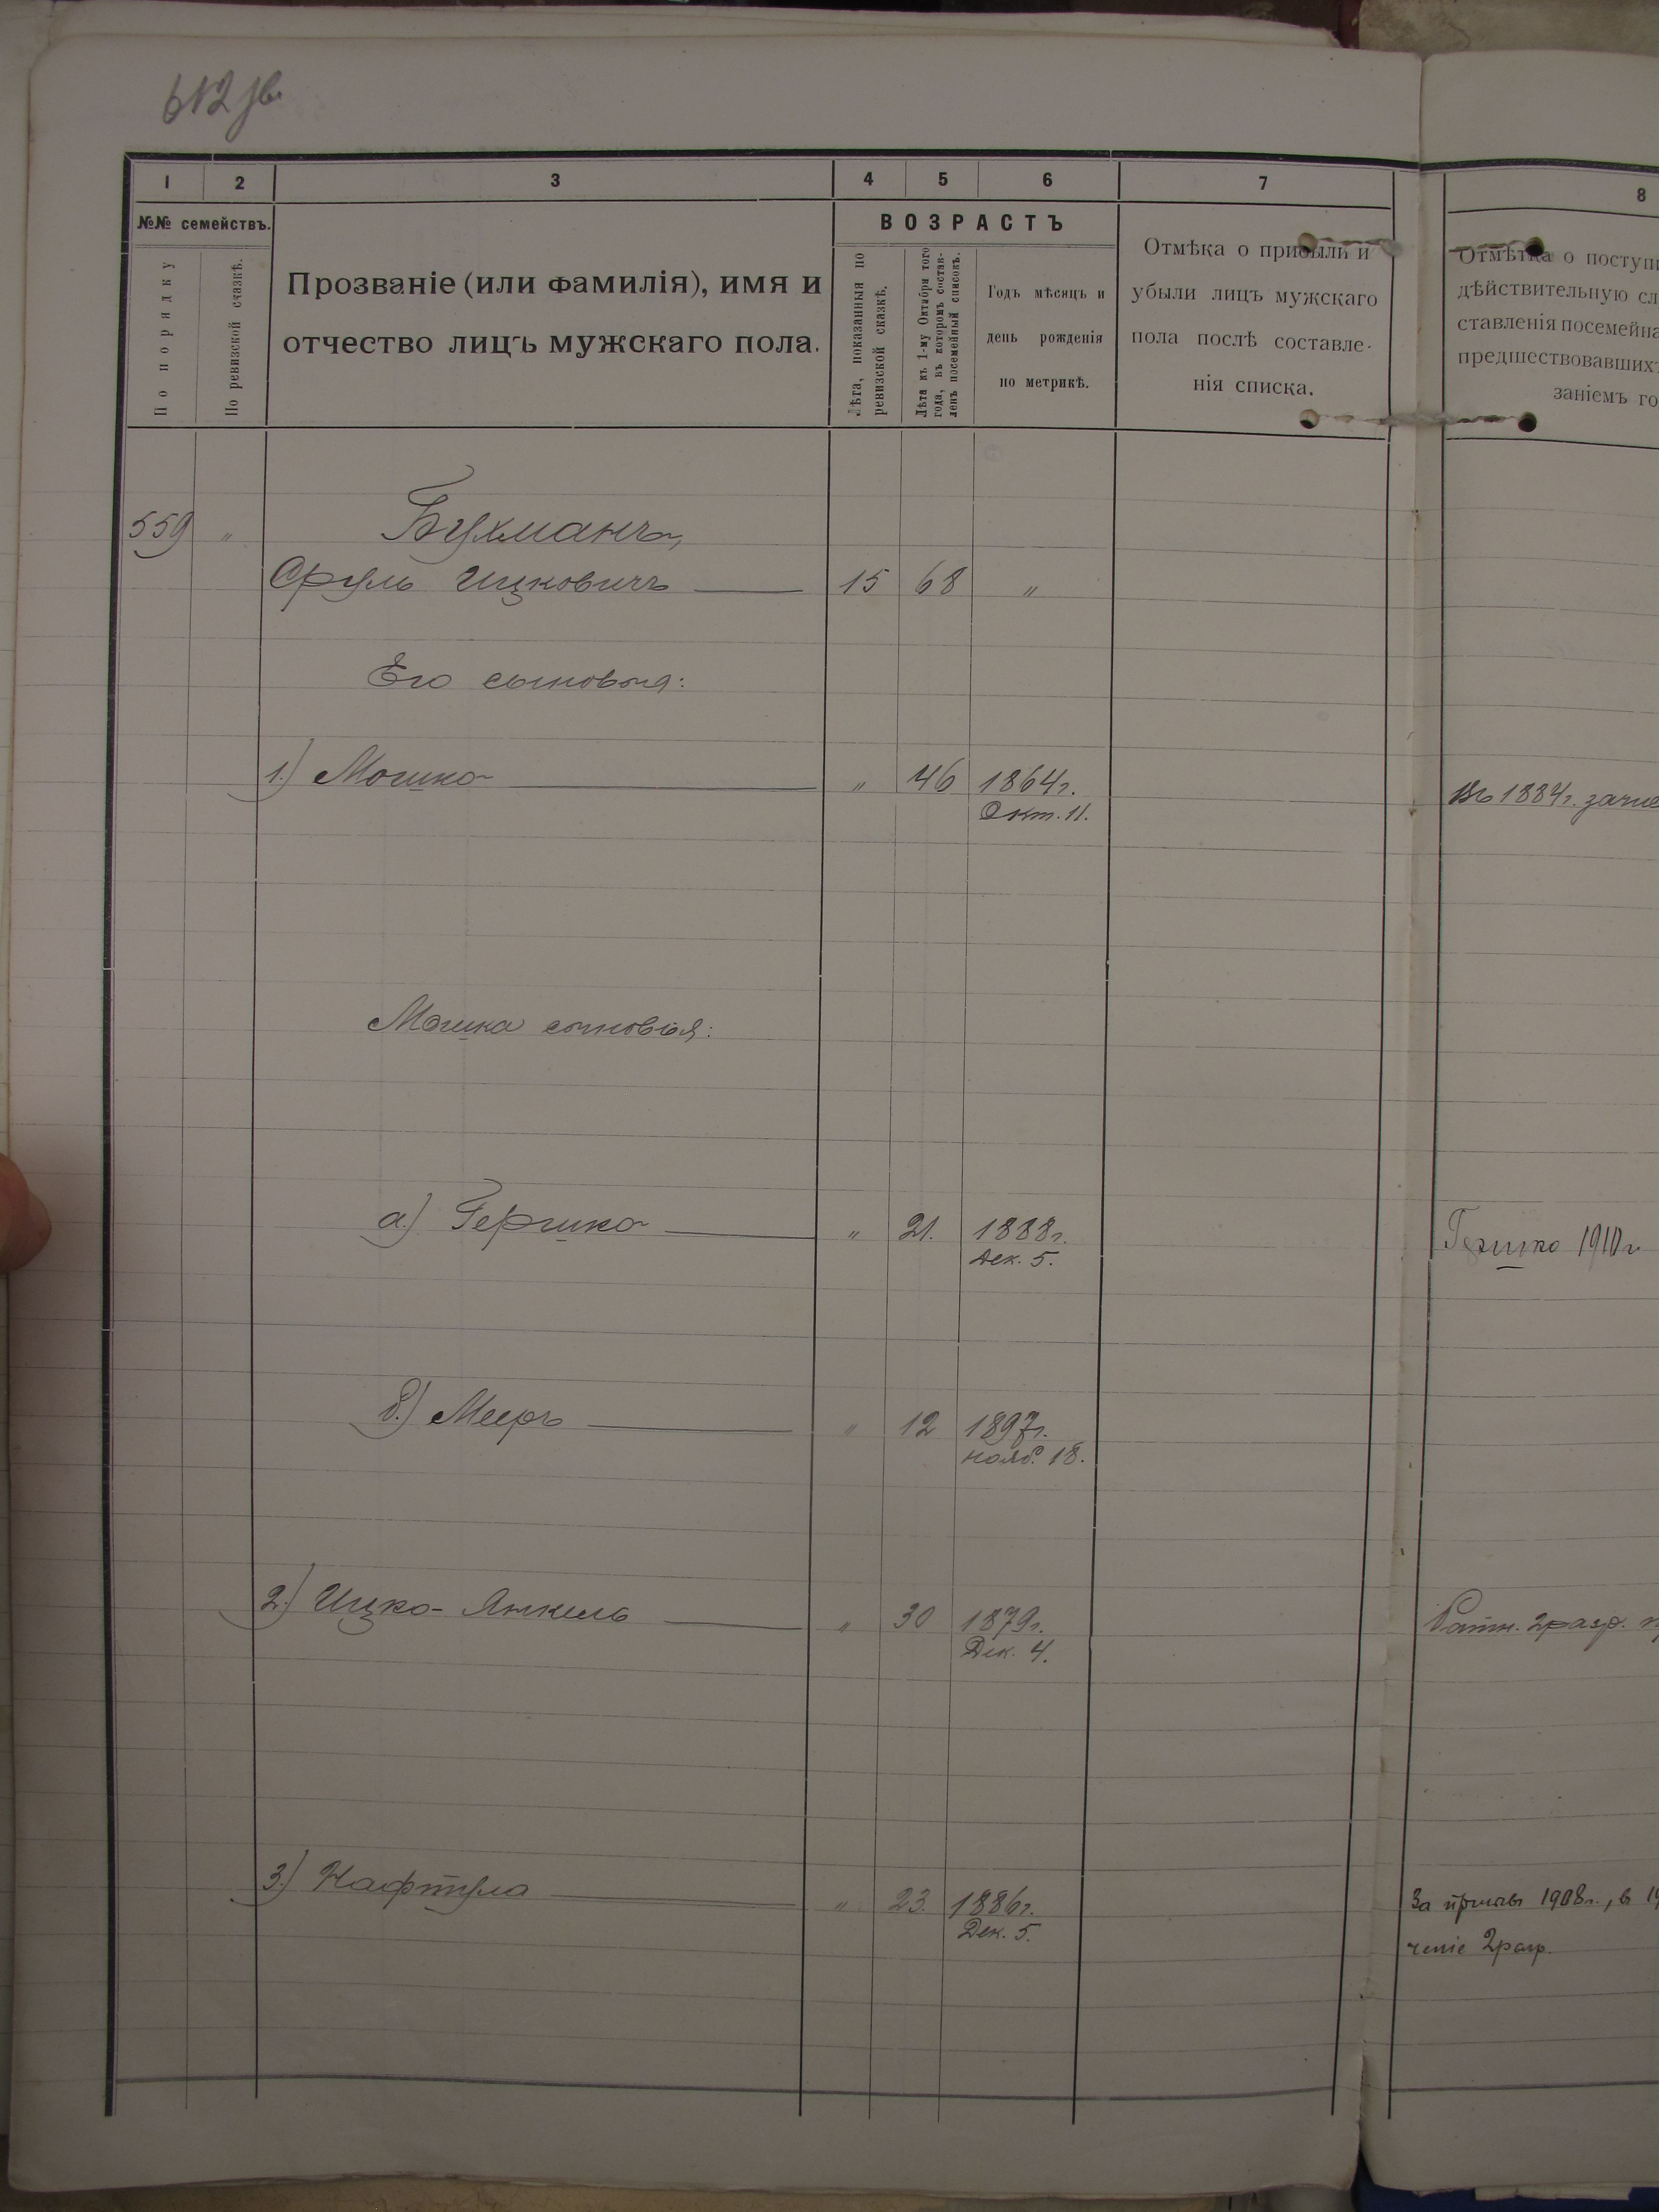 1 2 3 4 5 6 7 8
№№ семействъ.
По порядку
По ревизской сказкѣ.
Прозваніе (или фамилія), имя и
отчество лицъ мужскаго пола.
ВОЗРАСТЪ
Лѣта, показанныя по
ревизской сказкѣ.
Лѣта къ 1-му Октября того
года, въ которомъ состав-
ленъ посемейный списокъ.
Годъ мѣсяцъ и
день рожденія
по метрикѣ.
Отмѣка о прибыли и
убыли лицъ мужскаго
пола послѣ составле-
нія списка.
Отмѣтка о поступ
дѣйствительную сл
ставленія посемейна
предшествовавшихъ
заніемъ го
559 " Бухманъ,
Сруль Ицковичъ 15 68 "
Его сыновья:
1.) Мошко " 46 1864г.
Окт. 11.
Въ 1884г. зачис
Мошка сыновья:
а) Гершко " 21. 1888г.
Дек. 5.
Гершко 1910г
б.) Мееръ " 12 1897г.
Нояб. 18.
2.) Ицко-Янкель " 30 1879г.
Дек. 4.
Ратн. 2разр.
3.) Нафтула " 23. 1886г.
Дек. 5.
За призывъ 1908г., в 19
чение 2разр.